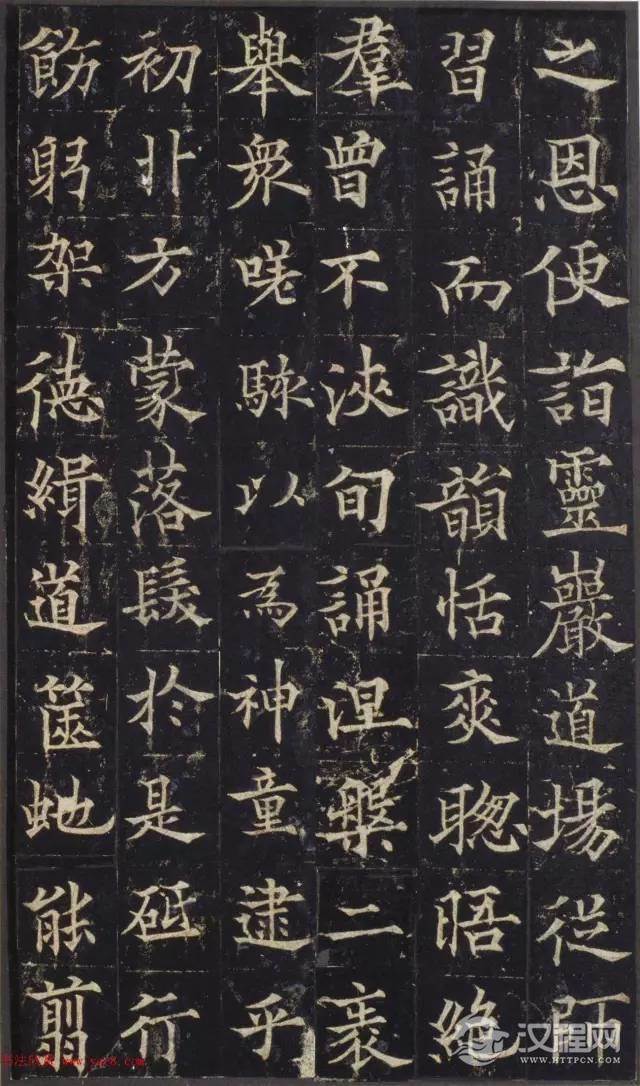 之恩便詣靈巖道場從師
習誦而識韻恬爽聰晤絕
羣曾不浹旬誦涅槃二袠
舉眾嗟駭以為神童逮乎
初卝方蒙落髮於是砥行
飭躬架德緝道篋虵能翦
书法欣赏 www.yac8.com
汉程网
WWW.HTTPCN.COM